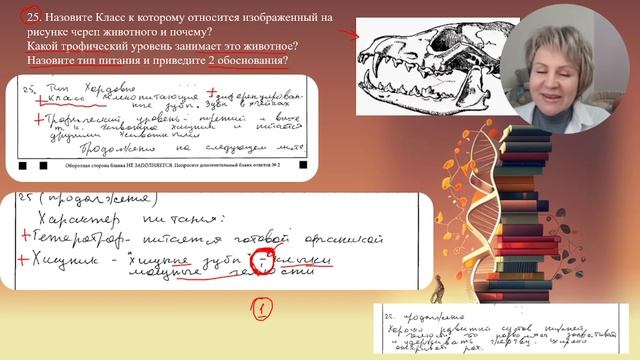 25. Назовите Класс к которому относится изображенный на
рисунке череп животного и почему?
Какой трофический уровень занимает это животное?
Назовите тип питания и приведите 2 обоснования?
25. Тип Хордовые
+ Класс млекопитающие + дифференцирован-
ные зубы. Зубы в ячейках
+ Трофический уровень - третий и выше
т. к. животное хищник и питается
другими животными
Продолжено на следующем листе
Оборотная сторона бланка НЕ ЗАПОЛНЯЕТСЯ. Попросите дополнительный бланк ответов № 2
25 (продолжение)
Характер питания:
+ Гетеротроф - питается готовой органикой
+ Хищник - "хищные зубы" - клыки
мощные челюсти
1
25. продолжено
Хорошо развитый сустав нижней
челюсти что позволяет захватывать
и удерживать жертву, широко
открывая рот.